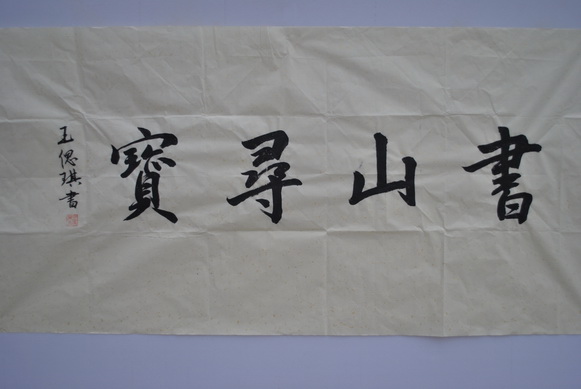 書山尋寶
王偲琪書